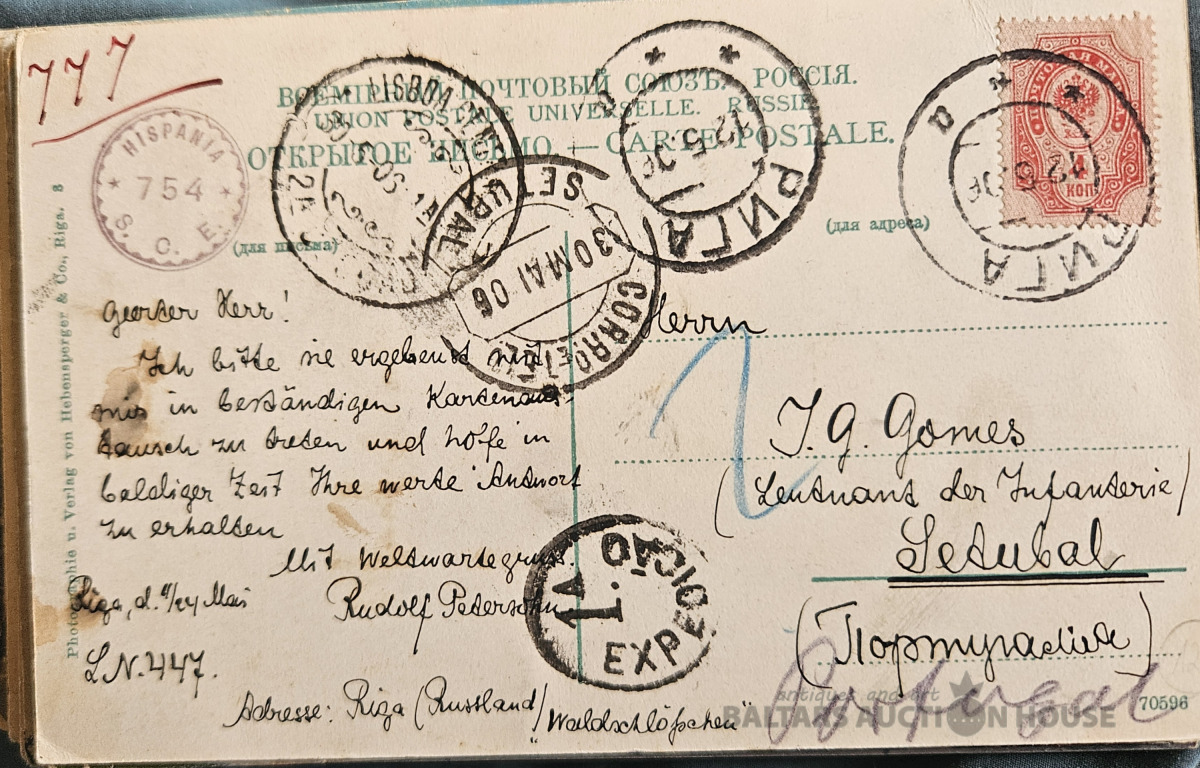 777
ВСЕМІРНЫЙ ПОЧТОВЫЙ СОЮЗЪ. РОССІЯ.
UNION POSTALE UNIVERSELLE. RUSSIE
ОТКРЫТОЕ ПИСЬМО. — CARTE POSTALE.
HISPANIA
754
S. C. E.
LISBOA
SETUBAL
30 MAI 06
CORRO
РИГА
12 5 06
а
РИГА
12 5 06
а
4
КОП
(для письма)
(для адреса)
Photographie u. Verlag von Hebensperger & Co., Riga. 8
Geerter Herr!
Ich bitte sie ergebenst mit
mir in beständigen Kartenaus
tausch zu treten und hoffe in
baldiger Zeit Ihre werte Antwort
zu erhalten
Mit Weltwartegruss.
Riga, d. Mai
Rudolf Petersohn
L.N. 447.
Adresse: Riga (Russland)
"Waldschlößchen"
Herrn
J. G. Gomes
(Leutnant der Infanterie)
Setubal
(Португалия)
Portugal
1A
EXPEDIÇÃO
70596
antiques and art
BALTARS AUCTION HOUSE